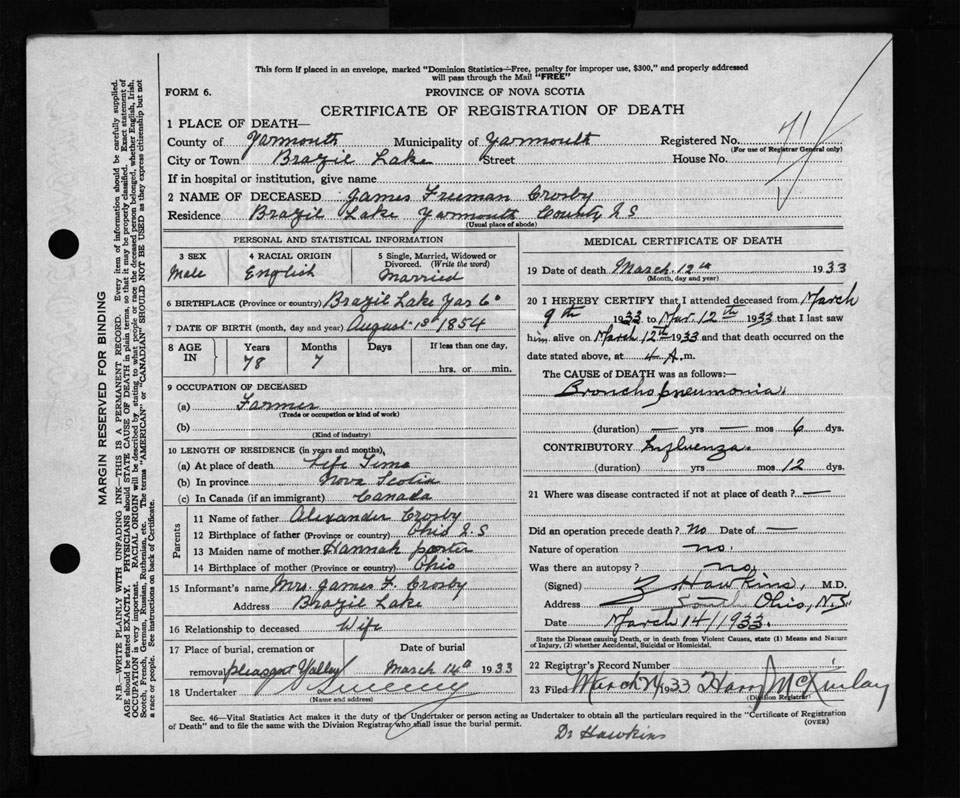 This form if placed in an envelope, marked "Dominion Statistics—Free, penalty for improper use, $300," and properly addressed
will pass through the Mail "FREE"
FORM 6.
PROVINCE OF NOVA SCOTIA
CERTIFICATE OF REGISTRATION OF DEATH
1 PLACE OF DEATH—
County of Yarmouth Municipality of Yarmouth Registered No. 71
(For use of Registrar General only)
City or Town Brazil Lake Street House No.
If in hospital or institution, give name
2 NAME OF DECEASED James Freeman Crosby
Residence Brazil Lake Yarmouth County N S
(Usual place of abode)
PERSONAL AND STATISTICAL INFORMATION
3 SEX 4 RACIAL ORIGIN 5 Single, Married, Widowed or
Divorced. (Write the word)
Male English Married
6 BIRTHPLACE (Province or country) Brazil Lake Yar Co
7 DATE OF BIRTH (month, day and year) August 13th 1854
8 AGE IN Years Months Days If less than one day,
78 7 hrs. or min.
9 OCCUPATION OF DECEASED
(a) Farmer
(Trade or occupation or kind of work)
(b)
(Kind of industry)
10 LENGTH OF RESIDENCE (in years and months),
(a) At place of death Life Time
(b) In province Nova Scotia
(c) In Canada (if an immigrant) Canada
Parents
11 Name of father Alexander Crosby
12 Birthplace of father (Province or country) Ohio N.S
13 Maiden name of mother Hannah porter
14 Birthplace of mother (Province or country) Ohio
15 Informant's name Mrs. James F. Crosby
Address Brazil Lake
16 Relationship to deceased Wife
17 Place of burial, cremation or Date of burial
removal pleasant Valley March 14th 1933
18 Undertaker Sweeney
(Name and address)
MEDICAL CERTIFICATE OF DEATH
19 Date of death March 12th 1933
(Month, day and year)
20 I HEREBY CERTIFY that I attended deceased from March
9th 1933 to Mar. 12th 1933 that I last saw
him alive on March 12th 1933 and that death occurred on the
date stated above, at 4 A. m.
The CAUSE of DEATH was as follows:
Broncho pneumonia
(duration) — yrs — mos 6 dys.
CONTRIBUTORY Influenza.
(duration) yrs mos 12 dys.
21 Where was disease contracted if not at place of death? —
Did an operation precede death? No Date of —
Nature of operation no.
Was there an autopsy? no
(Signed) Hawkins, M.D.
Address South Ohio, N.S.
Date March 14/1933.
State the Disease causing Death, or in death from Violent Causes, state (1) Means and Nature
of Injury, (2) whether Accidental, Suicidal or Homicidal.
22 Registrar's Record Number
23 Filed March 1933 Harry McKinlay
(Division Registrar)
Sec. 46—Vital Statistics Act makes it the duty of the Undertaker or person acting as Undertaker to obtain all the particulars required in the "Certificate of Registration
of Death" and to file the same with the Division Registrar who shall issue the burial permit.
(OVER)
Dr Hawkins
MARGIN RESERVED FOR BINDING
N.B.—WRITE PLAINLY WITH UNFADING INK—THIS IS A PERMANENT RECORD. Every item of information should be carefully supplied.
AGE should be stated EXACTLY. PHYSICIANS should STATE CAUSE OF DEATH in plain terms, so that it may be properly classified. Exact statement of
OCCUPATION is very important. RACIAL ORIGIN will be described by stating to what people or race the deceased person belonged, whether English, Irish,
Scotch, French, German, Russian, Ruthenian, etc. The terms "AMERICAN" or "CANADIAN" SHOULD NOT BE USED as they express citizenship but not
a race or people. See instructions on back of Certificate.